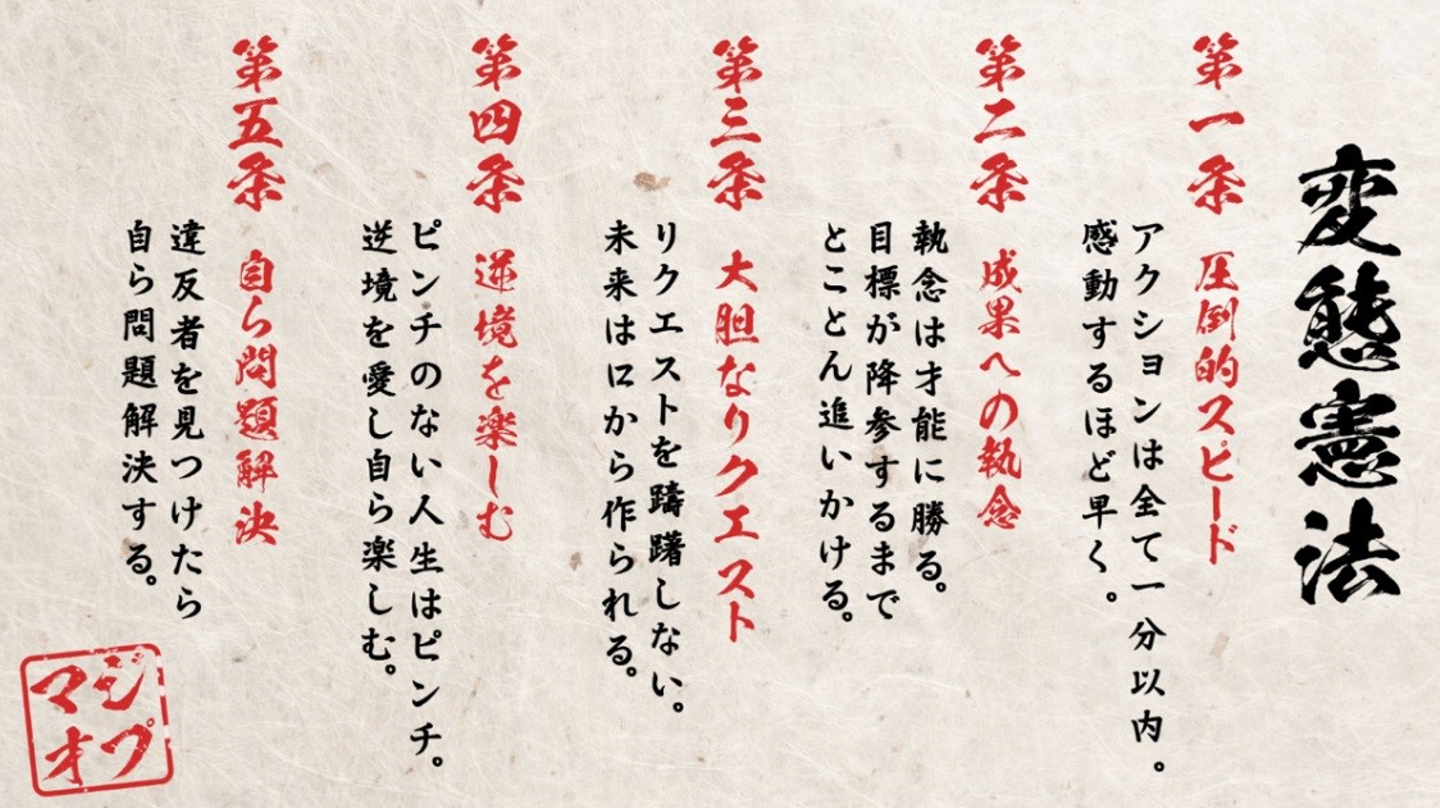 変態憲法
第一条 圧倒的スピード
アクションは全て一分以内。
感動するほど早く。
第二条 成果への執念
執念は才能に勝る。
目標が降参するまで
とことん追いかける。
第三条 大胆なリクエスト
リクエストを躊躇しない。
未来は口から作られる。
第四条 逆境を楽しむ
ピンチのない人生はピンチ。
逆境を愛し自ら楽しむ。
第五条 自ら問題解決
違反者を見つけたら
自ら問題解決する。
マジ
オプ